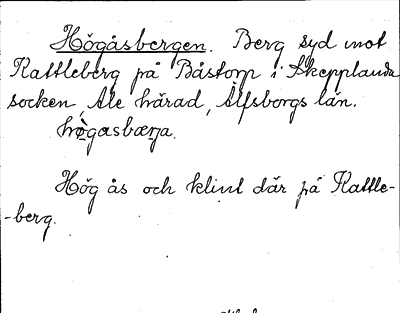 Högåsbergen. Berg syd mot
Kattleberg på Båstorp i Skepplanda
socken, Ale härad, Älfsborgs län.
hø̀gasbærja.
Hög ås och klint där på Kattle-
-berg.